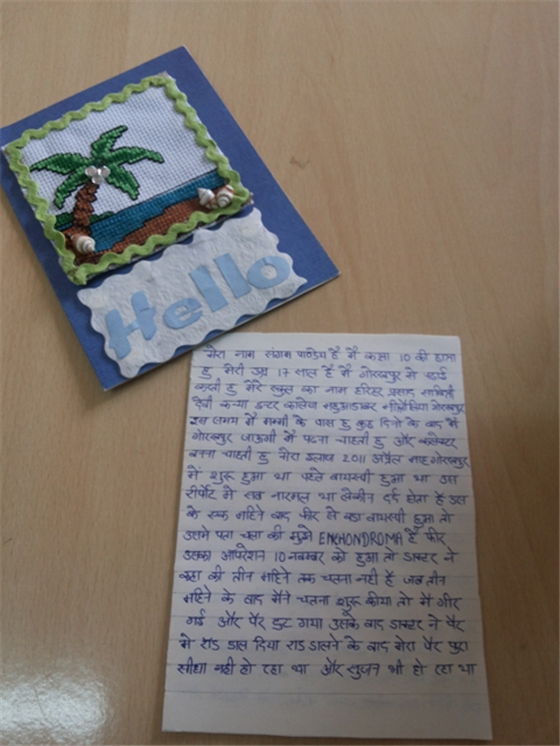 Hello
मेरा नाम संगम पाण्डेय है मैं कक्षा 10 की छात्रा
हु मेरी उम्र 17 साल है मैं गोरखपुर में पढाई
करती हु मेरे स्कुल का नाम हरिहर प्रसाद
देवी कन्या इन्टर कालेज गोरखपुर
इस समय मैं मम्मी के पास हु कुछ दिनो के बाद मैं
गोरखपुर जाऊगी मैं पढना चाहती हु और कलेक्टर
बनना चाहती हु मेरा इलाज 2011 अप्रैल माह गोरखपुर
में शुरू हुआ था पहले बायस्पी हुआ था उस
रीर्पोट में सब नारमल था लेकीन दर्द होता है उस
के एक महिने बाद फीर से बडा बायस्पी हुआ तो
उसमे पता चला की मुझे ENCHONDROMA है फीर
उसका आपरेशन 10 नवम्बर को हुआ तो डाक्टर ने
कहा की तीन महिने तक चलना नही है जब तीन
महिने के बाद मैने चलना शुरू कीया तो मैं गीर
गई और पैर टुट गया उसके बाद डाक्टर ने पैर
मे राड डाल दिया राड डालने के बाद मेरा पैर पुरा
सीधा नही हो रहा था और सुजन भी हो रहा था